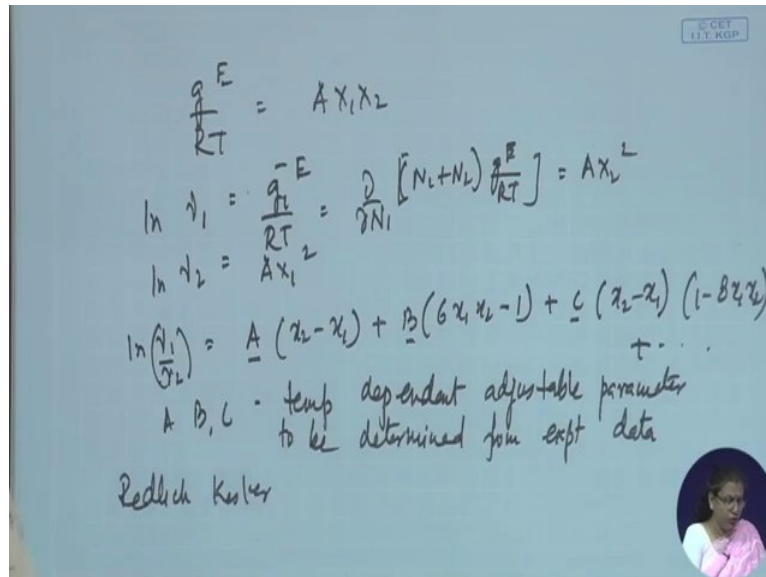 © CET
I.I.T. KGP
g^E/RT = A x₁x₂
ln γ₁ = g̅₁^E/RT = ∂/∂N₁ [(N₁+N₂) g^E/RT] = Ax₂²
ln γ₂ = Ax₁²
ln(γ₁/γ₂) = A (x₂-x₁) + B(6x₁x₂-1) + C (x₂-x₁) (1-8x₁x₂)
+ ....
A B, C - temp dependent adjustable parameter
to be determined from expt data
Redlich Kister